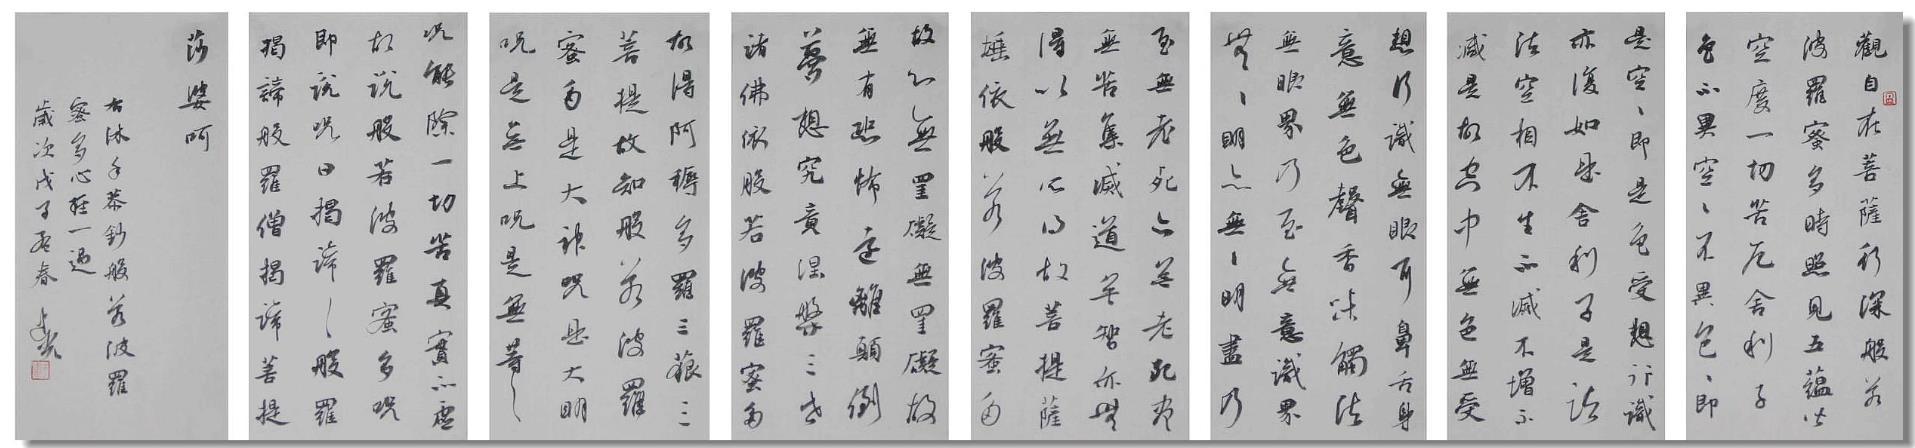 觀自在菩薩行深般若
波羅蜜多時照見五蘊皆
空度一切苦厄舍利子
色不異空、不異色、即
是空、即是色受想行識
亦復如是舍利子是諸
法空相不生不滅不增不
減是故空中無色無受
想行識無眼耳鼻舌身
意無色聲香味觸法
無眼界乃至無意識界
無、明亦無、明盡乃
至無老死亦無老死盡
無苦集滅道無智亦無
得以無所得故菩提薩
埵依般若波羅蜜多
故心無罣礙無罣礙故
無有恐怖遠離顛倒
夢想究竟涅槃三世
諸佛依般若波羅蜜多
故得阿耨多羅三藐三
菩提故知般若波羅
蜜多是大神呪是大明
呪是無上呪是無等、
呪能除一切苦真實不虛
故說般若波羅蜜多呪
即說呪曰揭諦、般羅
揭諦般羅僧揭諦菩提
莎婆呵
右沐手恭鈔般若波羅
蜜多心經一過
歲次戊子孟春